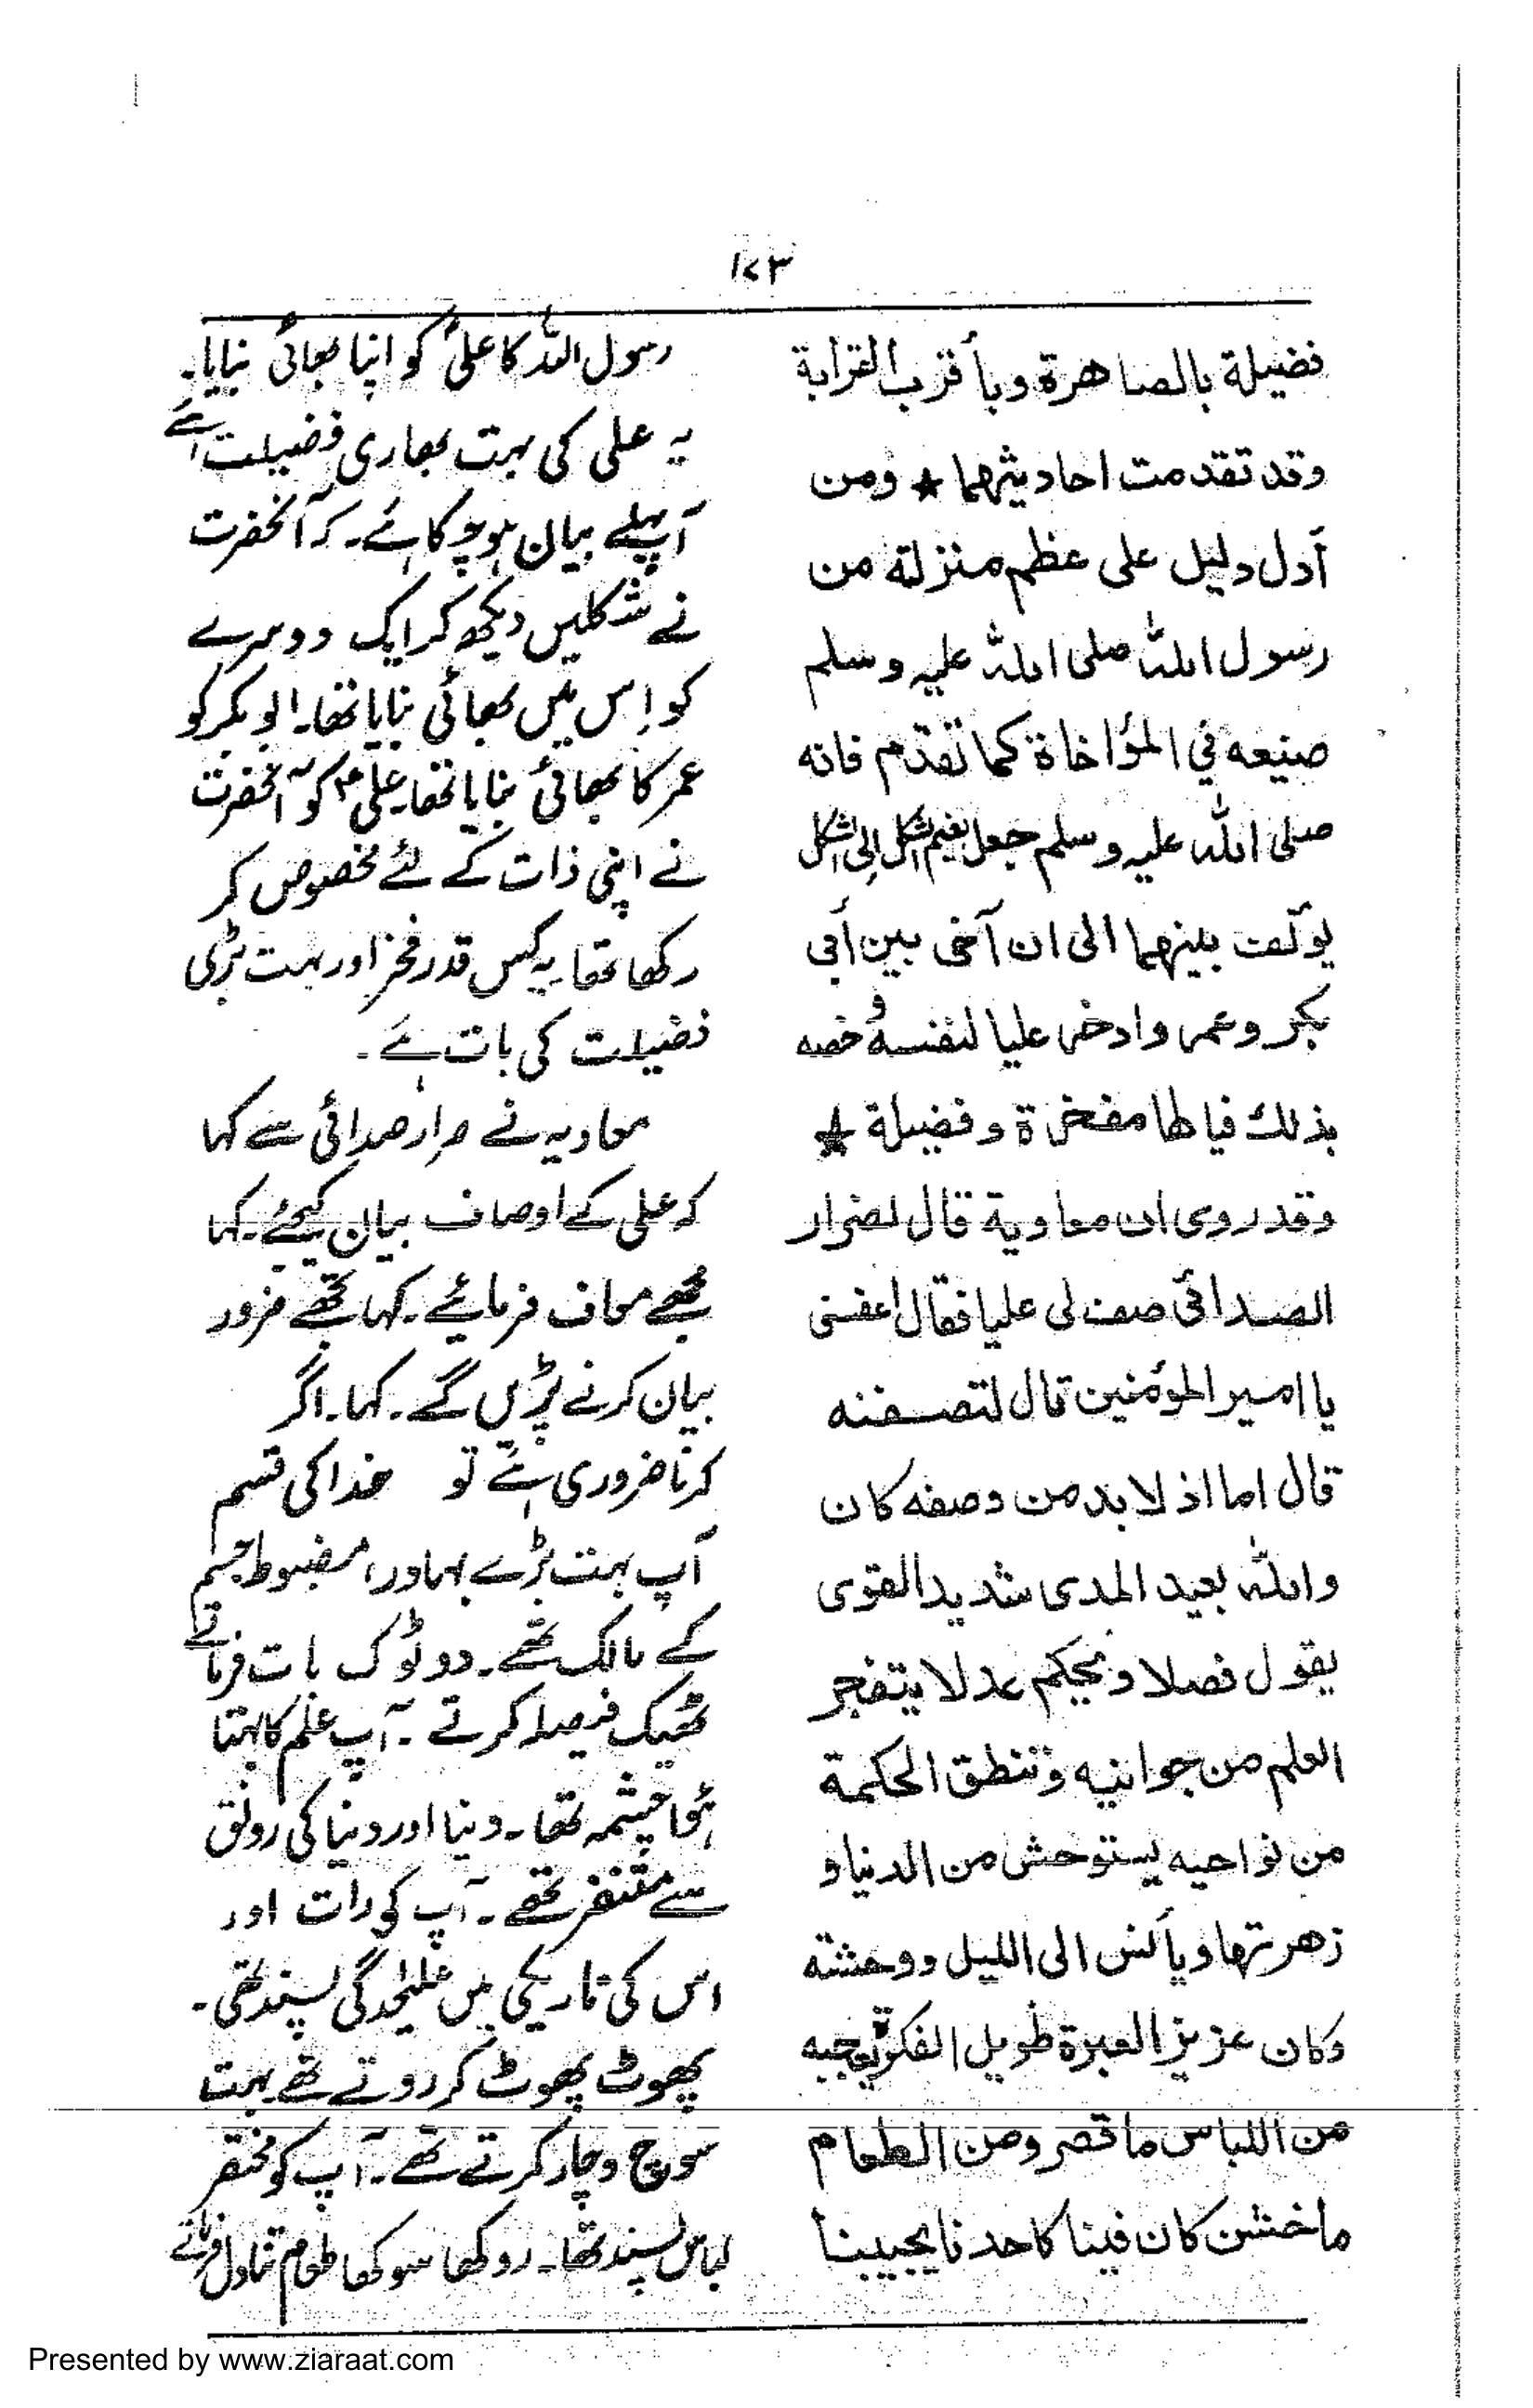 ۱۷۳
فضيلة بالصاهرة وبأقرب القرابة
وقد تقدمت احاديثهما ★ ومن
أدل دليل على عظم منزلة من
رسول الله صلى الله عليه وسلم
صنيعه في المؤاخاة كما تقدم فانه
صلى الله عليه وسلم جعل يضم الشكل الى الشكل
يؤلف بينهما الى ان آخى بين أبى
بكر وعمر وادخر عليا لنفسه و خصه
بذلك فيالها مفخرة وفضيلة ★
وقد روى ان معاوية قال لضرار
الصدائى صف لى عليا فقال اعفنى
يا امير المؤمنين قال لتصفنه
قال اما اذ لا بد من وصفه كان
والله بعيد المدى شديد القوى
يقول فصلا ويحكم عدلا يتفجر
العلم من جوانبه وتنطق الحكمة
من نواحيه يستوحش من الدنيا و
زهرتها ويأنس الى الليل ووحشته
وكان عزيز العبرة طويل الفكرة يعجبه
من اللباس ما قصر ومن الطعام
ما خشن كان فينا كاحدنا يجيبنا
رسول اللہ کا علیؑ کو اپنا بھائی بنایا۔
یہ علی کی بہت بھاری فضیلت ہے
آپہلے بیان ہوچکا ہے۔ کہ آنحضرت
نے شکلیں دیکھ کر ایک دوسرے
کو اِس میں بھائی بنایا تھا۔ ابوبکر کو
عمر کا بھائی بنایا تھا۔ علیؑ کو آنحضرت
نے اپنی ذات کے لئے مخصوص کر
رکھا تھا یہ کس قدر فخر اور بہت بڑی
فضیلت کی بات ہے۔
معاویہ نے ضرار صدائی سے کہا
کہ علی کے اوصاف بیان کیجئے۔ کہا
مجھے معاف فرمائیے۔ کہا تجھے ضرور
بیان کرنے پڑیں گے۔ کہا۔ اگر
کرنا ضروری ہے تو خدا کی قسم
آپ بہت بڑے بہادر، مضبوط جسم
کے مالک تھے۔ دو ٹوک بات فرماتے
ٹھیک فیصلہ کرتے۔ آپ علم کا بہتا
ہؤا چشمہ تھا۔ دنیا اور دنیا کی رونق
سے متنفر تھے۔ آپ کی رات اور
اس کی تاریکی میں علیٰحدگی پسند تھی۔
پھوٹ پھوٹ کر روتے تھے بہت
سوچ وچار کرتے تھے۔ آپ کو مختصر
لباس پسند تھا۔ روکھا سوکھا طعام تناول فرماتے
Presented by www.ziaraat.com